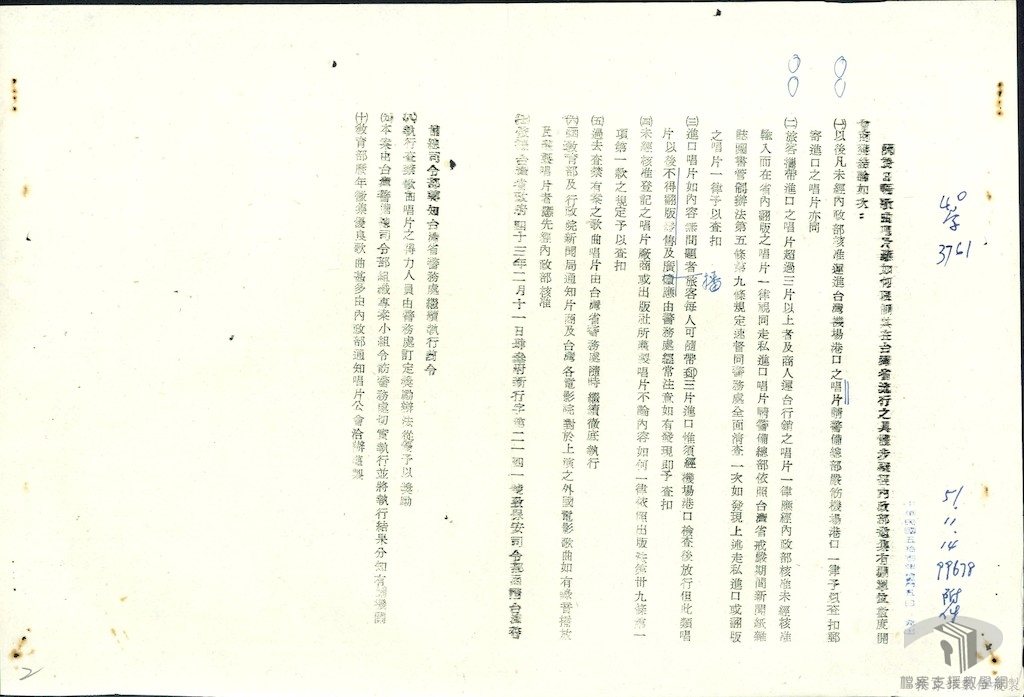 51.11.14
99678
附件
4.0
字
3761
關於日語歌曲唱片應如何限制其在台灣省流行之具體步驟經內政部邀集有關單位數度開
會商獲結論如次:
㈠以後凡未經內政部核准運進台灣機場港口之唱片請警備總部嚴飭機場港口一律予以查扣郵
寄進口之唱片亦同
㈡旅客攜帶進口之唱片超過三片以上者及商人運台行銷之唱片一律應經內政部核准未經核准
輸入而在省內翻版之唱片一律視同走私進口唱片請警備總部依照台灣省戒嚴期間新聞紙雜
誌圖書管制辦法第五條第九條規定逕督同警務處全面清查一次如發現上述走私進口或翻版
之唱片一律予以查扣
㈢進口唱片如內容無問題者旅客每人可隨帶㈣三片進口惟須經機場港口檢查後放行但此類唱
片以後不得翻版 傳及廣播應由警務處經常注意如有發現即予查扣
播
㈣未經核准登記之唱片廠商或出版社所灌製唱片不論內容如何一律依照出版法第卅九條第一
項第一款之規定予以查扣
㈤過去查禁有案之歌曲唱片由台灣省警務處隨時繼續徹底執行
㈥ 教育部及行政院新聞局通知片商及台灣各電影院對於上演之外國電影歌曲如有錄音播放
及灌製唱片者應先經內政部核准
㈦ 台灣省政府四十三年二月十一日 府新行字第二一四一號致保安司令部 請台灣
備總司令部轉知台灣省警務處繼續執行該令
㈧執行查禁歌曲唱片之得力人員由警務處訂定獎勵辦法從優予以獎勵
㈨本案由台灣警備總司令部組織專案小組令飭警務處切實執行並將執行結果分知有關機關
㈩教育部歷年徵集優良歌曲甚多由內政部通知唱片公會洽辦灌製
2
檔案支援教學網製